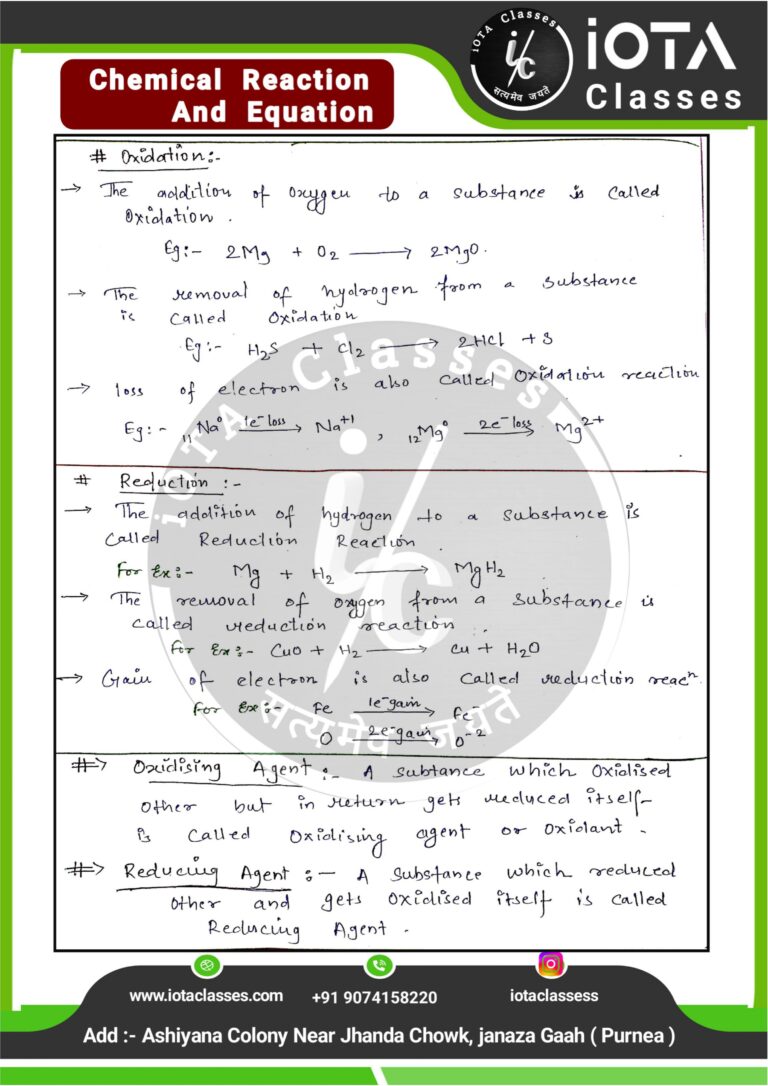 iOTA Classes
सत्यमेव जयते
iOTA
Classes
Chemical Reaction
And Equation
# Oxidation:-
→ The addition of oxygen to a substance is called
Oxidation.
Eg:- 2Mg + O₂ ⟶ 2MgO.
→ The removal of hydrogen from a substance
is called Oxidation
Eg:- H₂S + Cl₂ ⟶ 2HCl + S
→ loss of electron is also called Oxidation reaction
Eg:- ₁₁Na⁰ 1e⁻ loss⟶ Na⁺¹ , ₁₂Mg⁰ 2e⁻ loss⟶ Mg²⁺
# Reduction :-
→ The addition of hydrogen to a substance is
called Reduction Reaction
For Ex:- Mg + H₂ ⟶ MgH₂
→ The removal of oxygen from a substance is
called reduction reaction.
For Ex:- CuO + H₂ ⟶ Cu + H₂O
→ Gain of electron is also called reduction reacⁿ.
For Ex:- Fe 1e⁻gain⟶ Fe⁻
O 2e⁻gain⟶ O⁻²
#⇒ Oxidising Agent:- A subtance which Oxidised
other but in return gets reduced itself-
is called Oxidising agent or oxidant.
#⇒ Reducing Agent :- A substance which reduced
other and gets oxidised itself is called
Reducing Agent.
iOTA Classes
i/c
सत्यमेव जयते
www.iotaclasses.com +91 9074158220 iotaclassess
Add :- Ashiyana Colony Near Jhanda Chowk, janaza Gaah ( Purnea )